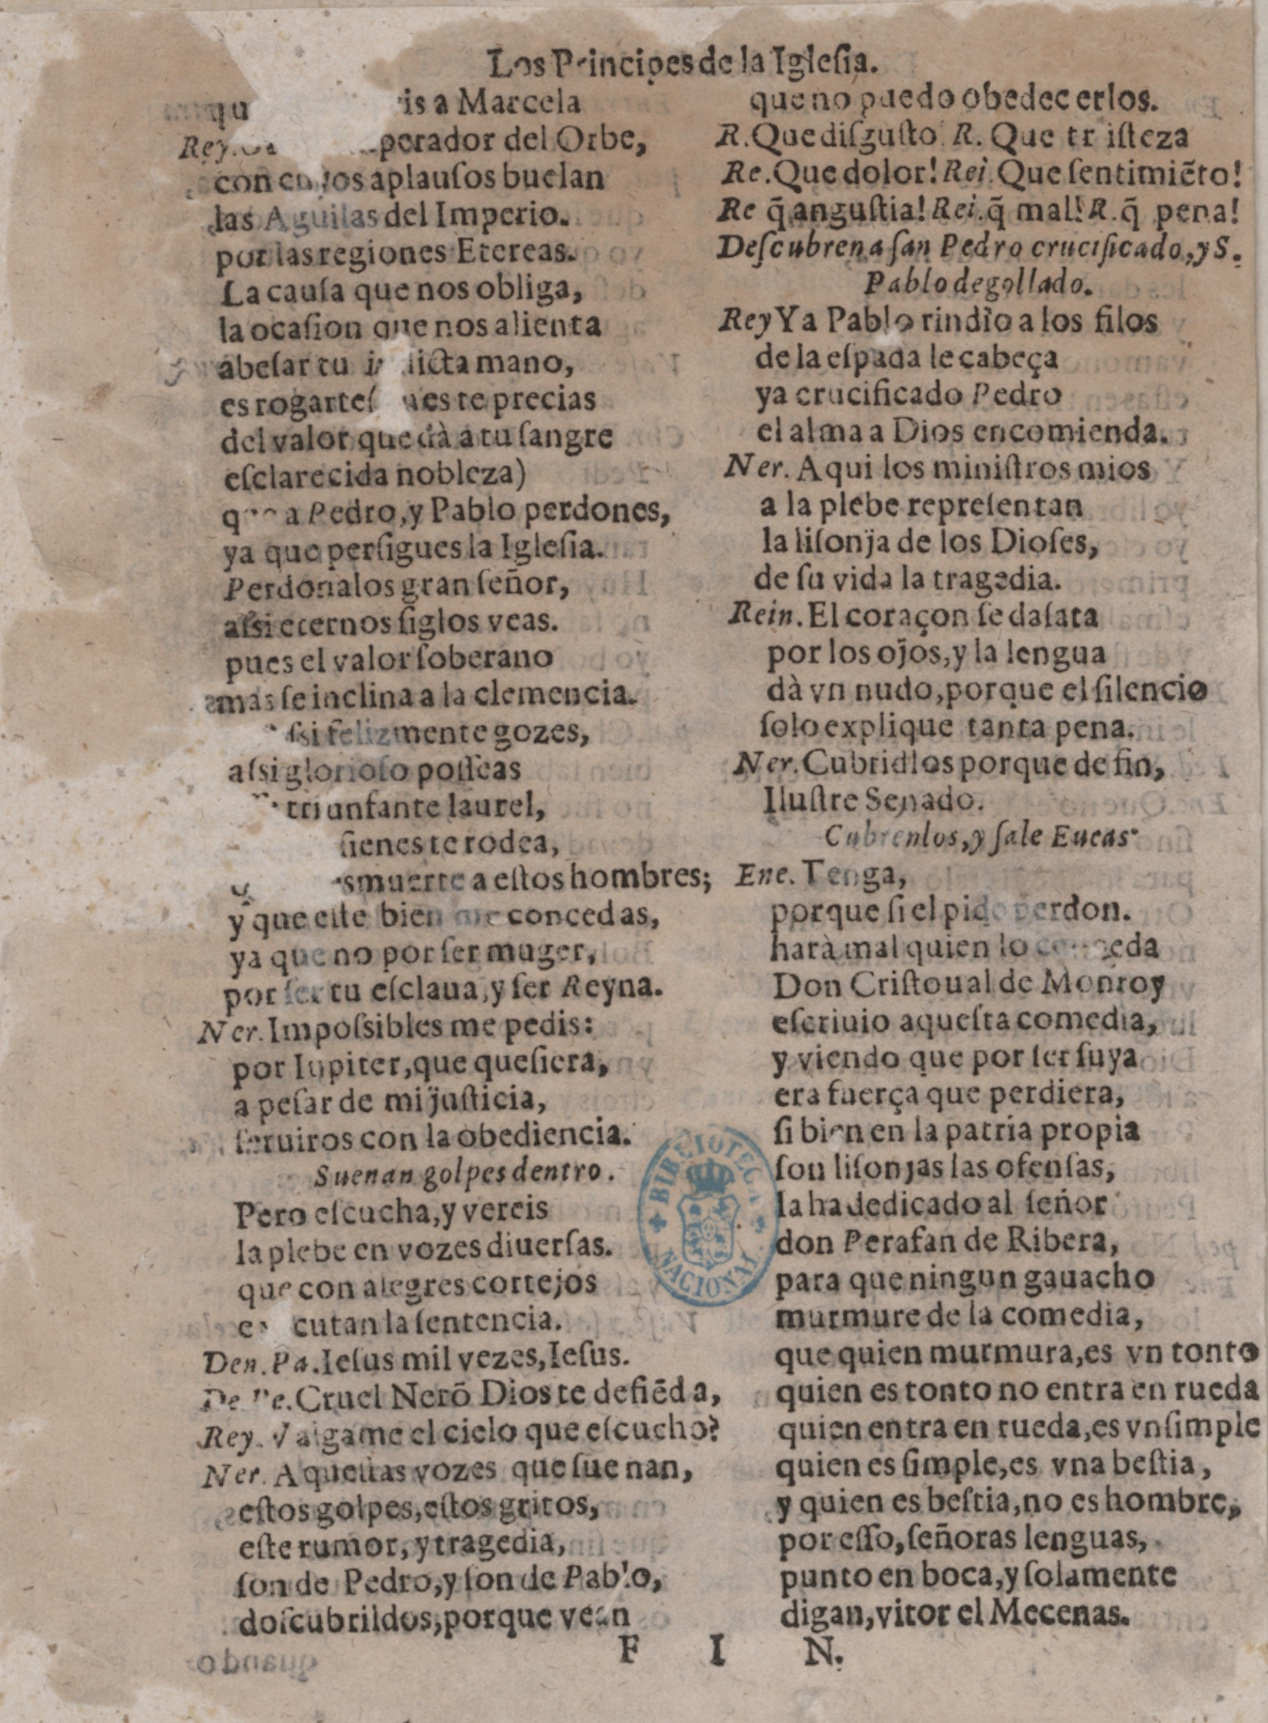 Los Principes de la Iglesia.
qu is a Marcela
Rey. perador del Orbe,
con cuyos aplauſos buelan
las Aguilas del Imperio.
por las regiones Etereas.
La cauſa que nos obliga,
la ocaſion que nos alienta
abeſar tu inuicta mano,
es rogarte( pues te precias
del valor que dà a tu ſangre
eſclarecida nobleza)
que a Pedro, y Pablo perdones,
ya que perſigues la Igleſia.
Perdonalos gran ſeñor,
aſsi eternos ſiglos veas.
pues el valor ſoberano
mas ſe inclina a la clemencia.
ſsi felizmente gozes,
aſsi glorioſo poſſeas
triunfante laurel,
ſienes te rodea,
muerte a eſtos hombres;
y que eſte bien me concedas,
ya que no por ſer muger,
por ſer tu eſclaua, y ſer Reyna.
Ner. Impoſsibles me pedis:
por Iupiter, que queſiera,
a peſar de mi juſticia,
ſeruiros con la obediencia.
Suenan golpes dentro.
Pero eſcucha, y vereis
la plebe en vozes diuerſas.
que con alegres cortejos
executan la ſentencia.
Den. Pa. Ieſus mil vezes, Ieſus.
De Pe. Cruel Nerõ Dios te defiẽda,
Rey. Valgame el cielo que eſcucho?
Ner. Aquellas vozes que ſuenan,
eſtos golpes, eſtos gritos,
eſte rumor, y tragedia,
ſon de Pedro, y ſon de Pablo,
doſcubrildos, porque vean
que no puedo obedecerlos.
R. Que diſguſto R. Que triſteza
Re. Que dolor! Rei. Que ſentimiẽto!
Re q̃ anguſtia! Rei. q̃ mal! R. q̃ pena!
Deſcubren a ſan Pedro crucificado, y S.
Pablo degollado.
Rey Ya Pablo rindio a los filos
de la eſpada le cabeça
ya crucificado Pedro
el alma a Dios encomienda.
Ner. Aqui los miniſtros mios
a la plebe repreſentan
la liſonja de los Dioſes,
de ſu vida la tragedia.
Rein. El coraçon ſe daſata
por los ojos, y la lengua
dà vn nudo, porque el ſilencio
ſolo explique tanta pena.
Ner. Cubridlos porque de fin,
Iluſtre Senado.
Cubrenlos, y ſale Eucas
Ene. Tenga,
porque ſi el pide perdon.
harà mal quien lo conceda
Don Criſtoual de Monroy
eſcriuio aqueſta comedia,
y viendo que por ſer ſuya
era fuerça que perdiera,
ſi bien en la patria propia
ſon liſonjas las ofenſas,
la ha dedicado al ſeñor
don Perafan de Ribera,
para que ningun gauacho
murmure de la comedia,
que quien murmura, es vn tonto
quien es tonto no entra en rueda
quien entra en rueda, es vn ſimple
quien es ſimple, es vna beſtia,
y quien es beſtia, no es hombre,
por eſſo, ſeñoras lenguas,
punto en boca, y ſolamente
digan, vitor el Mecenas.
F I N.
BIBLIOTECA NACIONAL